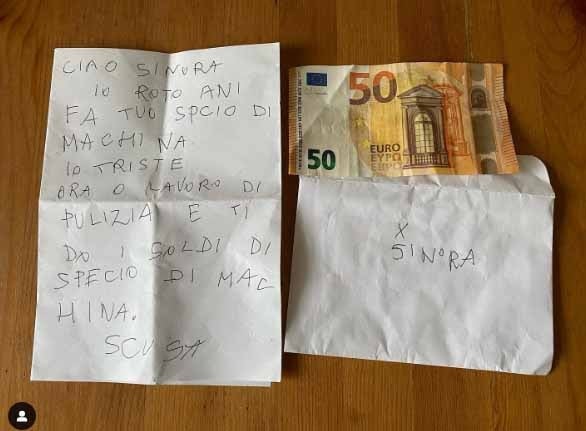 CIAO SINORA
IO ROTO ANI
FA TUO SPCIO DI
MACHINA
IO TRISTE
ORA O LAVORO DI
PULIZIA E TI
DO I SOLDI DI
SPECIO DI MAC
HINA.
SCUSA
50
50
EURO
ΕΥΡΩ
ЕВРО
X
SINORA